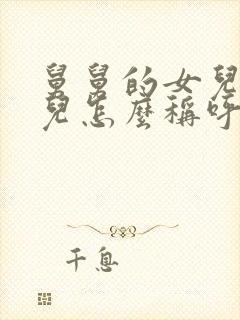 舅舅的女兒
兒怎麼稱呼
千息